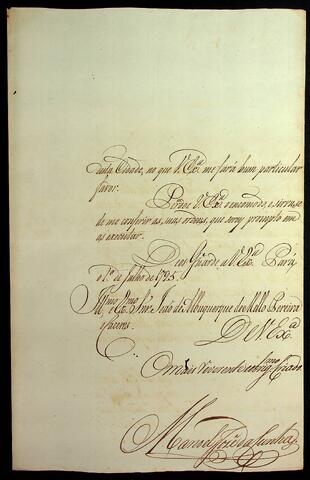 desta Cidade, no que V. Exª. me fará hum particular
favor.
Perdoe V. Exª. o incomodo, e sirva-se
de me conferir as suas ordens, que serey prompto em
as executar.
Deos Guarde a V. Exª. Pará
o 1º. de Julho de 1795.
Illmo. e Exmo. Snr. João de Albuquerque de Mello Pereira
e Caceres.
De V. Exª.
O mais reverente Criado
Manoel José da Cunha